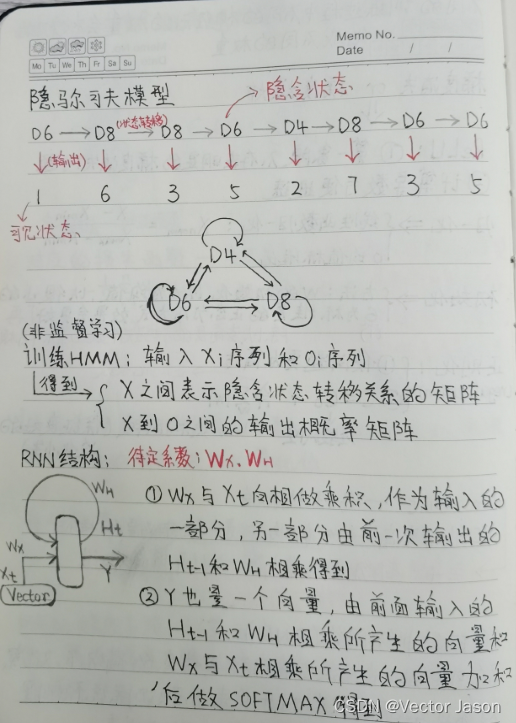 Memo No.
Date / /
Mo Tu We Th Fr Sa Su
隐马尔可夫模型
隐含状态
D6 → D8 (状态转移)→ D8 → D6 → D4 → D8 → D6 → D6
(输出)
1 6 3 5 2 7 3 5
可见状态
D4
D6 D8
(非监督学习)
训练HMM：输入Xi序列和Oi序列
得到 → { X之间表示隐含状态转移关系的矩阵
X到O之间的输出概率矩阵
RNN结构： 待定系数：Wx、WH
WH
Ht
Wx
Xt
Y
Vector
①Wx与Xt向相做乘积，作为输入的
一部分，另一部分由前一次输出的
Ht-1和WH相乘得到
②Y也是一个向量，由前面输入的
Ht-1和WH相乘所产生的向量和
Wx与Xt相乘所产生的向量加和
后做SOFTMAX得到
CSDN @Vector Jason